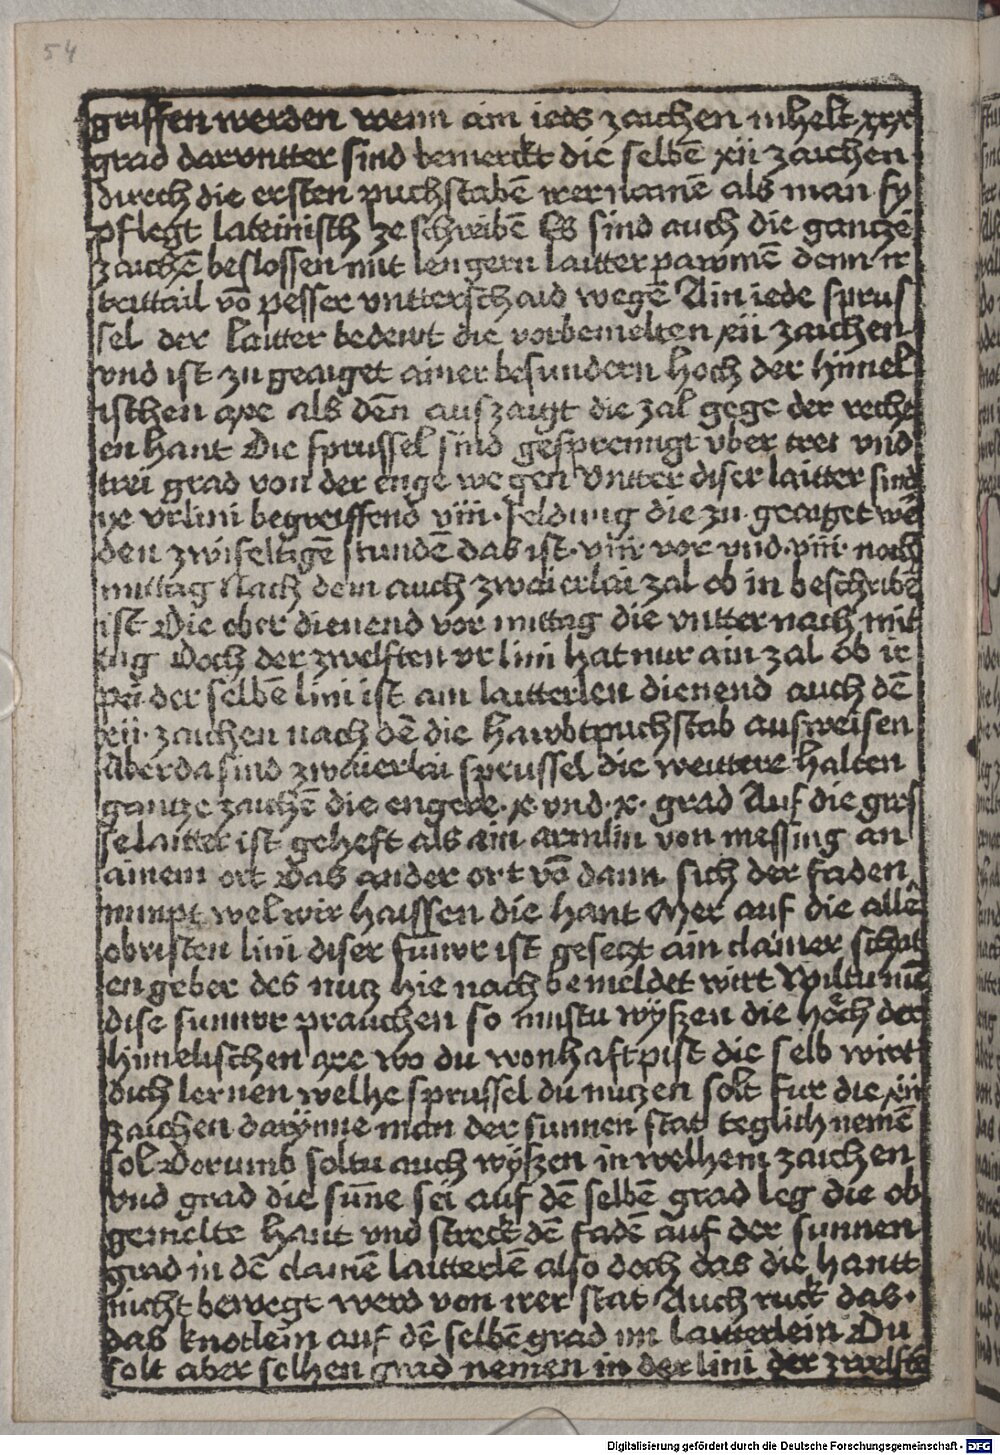 54
griffen werden wenn ain ieds zaichen inhelt xxx
grad daruntter sind bemerckt die selbē xii zaichen
durch die ersten puchstabē irer namē als man sy
pflegt lateinisch ze schreibē Es sind auch die gantzē
zaichē beslossen mit lengern laitter pawmē denn ir
trittail vō pesser vntterschaid wegē Ain iede sprus
sel der laitter bedewt die vorbemelten xii zaichen
vnd ist zu geaiget ainer besundern hoch der himel
ischen axe als dēn auszaigt die zal gege der recht
en hant Die sprussel sind gesprennigt vber trei vnd
trei grad von der enge wegen Vntter diser laitter sind
ix vrlini begreiffend viii feldung die zu geaiget wē
den zwiseltigē stundē das ist viii vor vnd viii noch
mittag Nach dem auch zwaierlai zal ob in beschribē
ist Die ober dienend vor mittag die vntter nach mit
tag Doch der zwelften vrlini hat nur ain zal ob ir
pei der selbē lini ist ain laitterlen dienend auch dē
xii zaichen nach dē die hawbtpuchstab ausweisen
Aber da sind zwaierlai sprussel die weittere halten
gantze zaichē die engere x vnd x grad Auf die gros
se laitter ist geheft als ain armlin von messing an
ainem ort Das ander ort vō dann sich der faden
nimpt wel wir haissen die hant Mer auf die allē
obristen lini diser figur ist gesetzt ain clainer schat
en geber des nutz hie nach bemeldet wirt Wiltu nū
dise figur prauchen so mustu wyszen die hoch der
himelischen axe wo du wonhaft pist die selb wirt
dich lernen welhe sprussel du nutzen solt fur die xii
zaichen darynne man der sunnen stat teglich nemē
sol Dorumb soltu auch wyszen in welhem zaichen
vnd grad die sūne sei auf dē selbē grad leg die ob
gemelte hant vnd streck dē fadē auf der sunnen
grad in dē clainē laitterlē also doch das die hantt
nicht bewegt werd von irer stat Auch ruck das
das knotlein auf dē selbē grad im laitterlein Du
solt aber solhen grad nemen in der lini der zwelftē
Digitalisierung gefördert durch die Deutsche Forschungsgemeinschaft - DFG